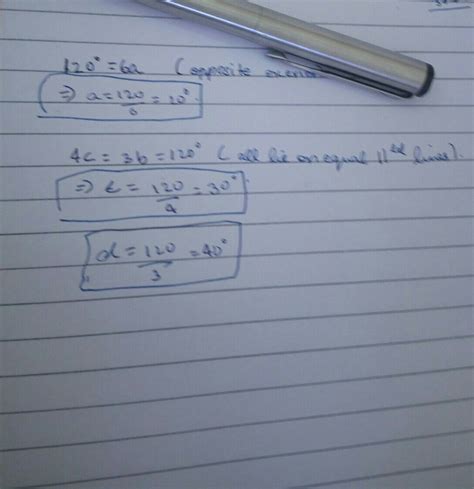 120° = 6a (opposite exerio
⇒ a = 120/6 = 20°.
4c = 3b = 120° (all lie on equal ||el lines).
⇒ c = 120/4 = 30°
d = 120/3 = 40°